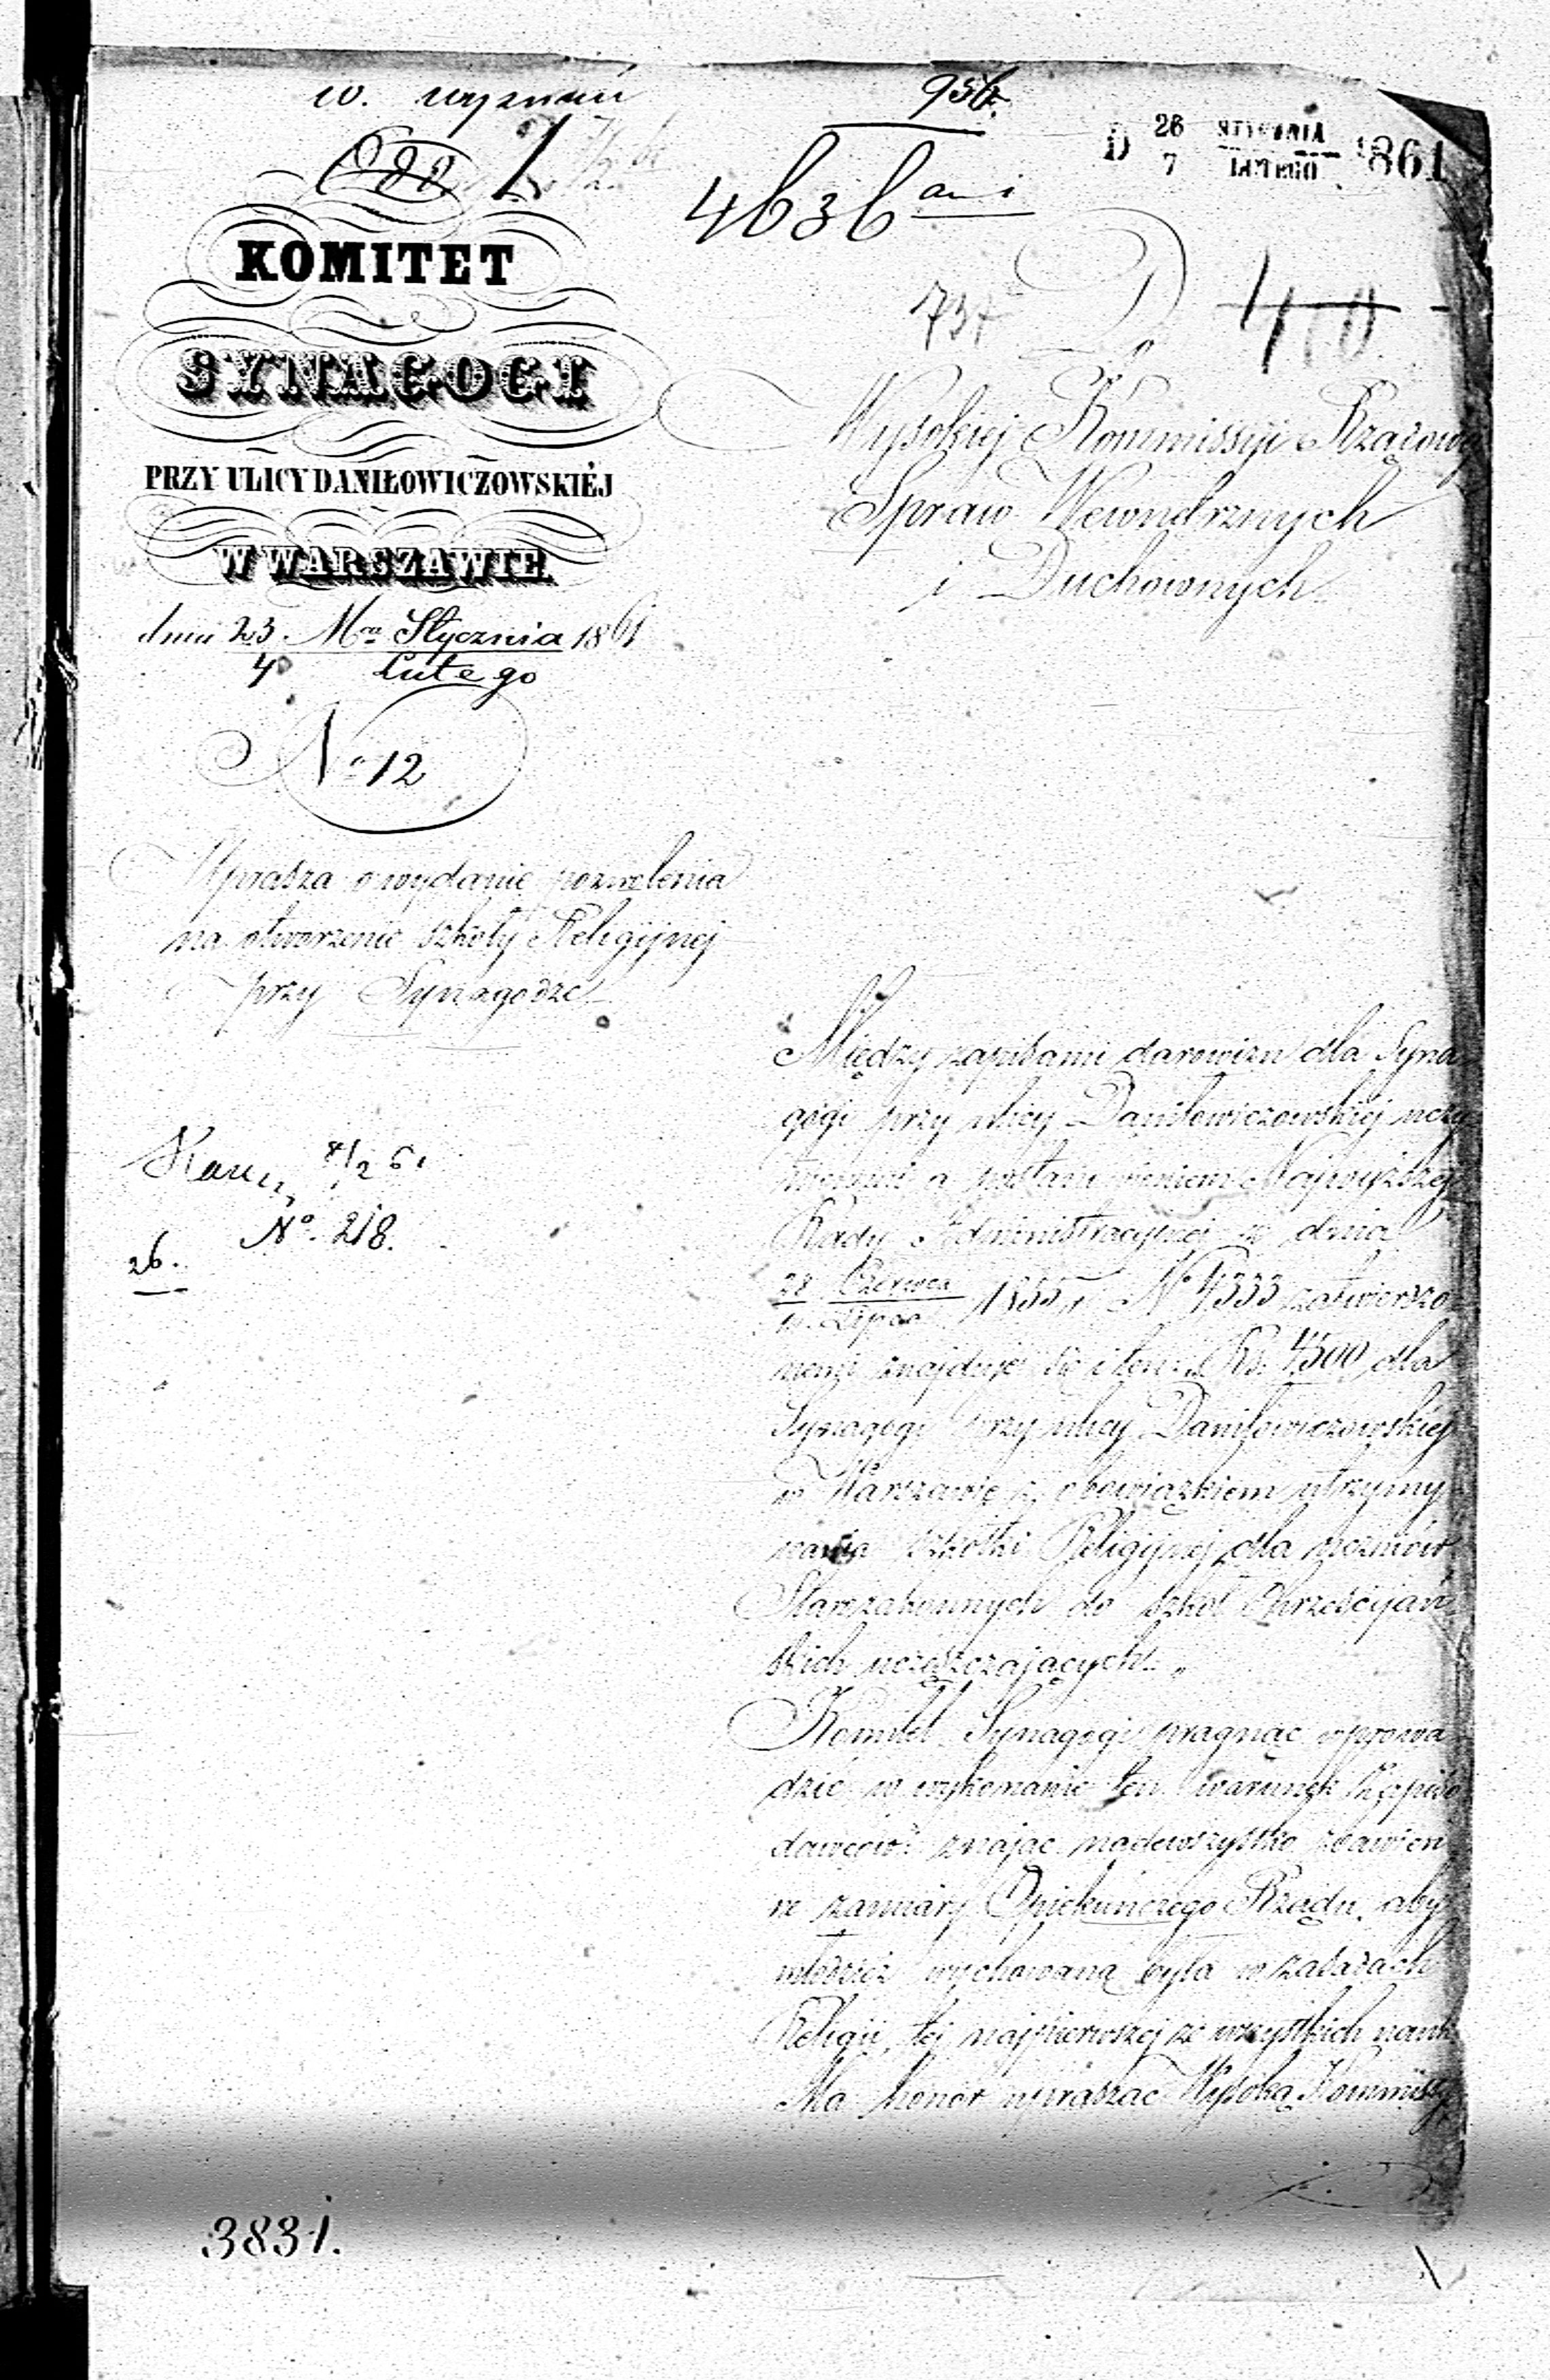 w. wyznań
956.
D 26 STYCZNIA
7 LUTEGO 1861
4636
KOMITET
737
SYNAGOGI
Wysokiej Kommissyi Rządowej
PRZY ULICY DANIŁOWICZOWSKIÉJ
Spraw Wewnętrznych
W WARSZAWIE.
i Duchownych
dnia 23 Mca Stycznia 1861
4 Lutego
No 12
Uprasza o wydanie pozwolenia
na otworzenie szkoły Religijnej
przy Synagodze
Między zapisami darowizn dla Syna
gogi przy ulicy Daniłowiczowskiej uczy
nionemi a postanowieniem Najwyższej
Rady Administracyjnej z dnia
28 Czerwca
10 Lipca 1855 r. No 4333 zatwierdzo
nemi znajduje się i ten: Rs. 4500 dla
Synagogi przy ulicy Daniłowiczowskiej
w Warszawie z obowiązkiem utrzymy
wania szkółki Religijnej dla uczniów
Starozakonnych do szkół Chrześcijań
skich uczęszczających.
Komitet Synagogi pragnąc wprowa
dzić w wykonanie ten warunek Zapiso
dawców znając nadewszystko zbawien
ne zamiary Opiekuńczego Rządu, aby
młodzież wychowaną była w zasadach
Religii, tej najpierwszej ze wszystkich nauk
Ma honor upraszać Wysoką Kommissyę
No. 218.
26.
3831.